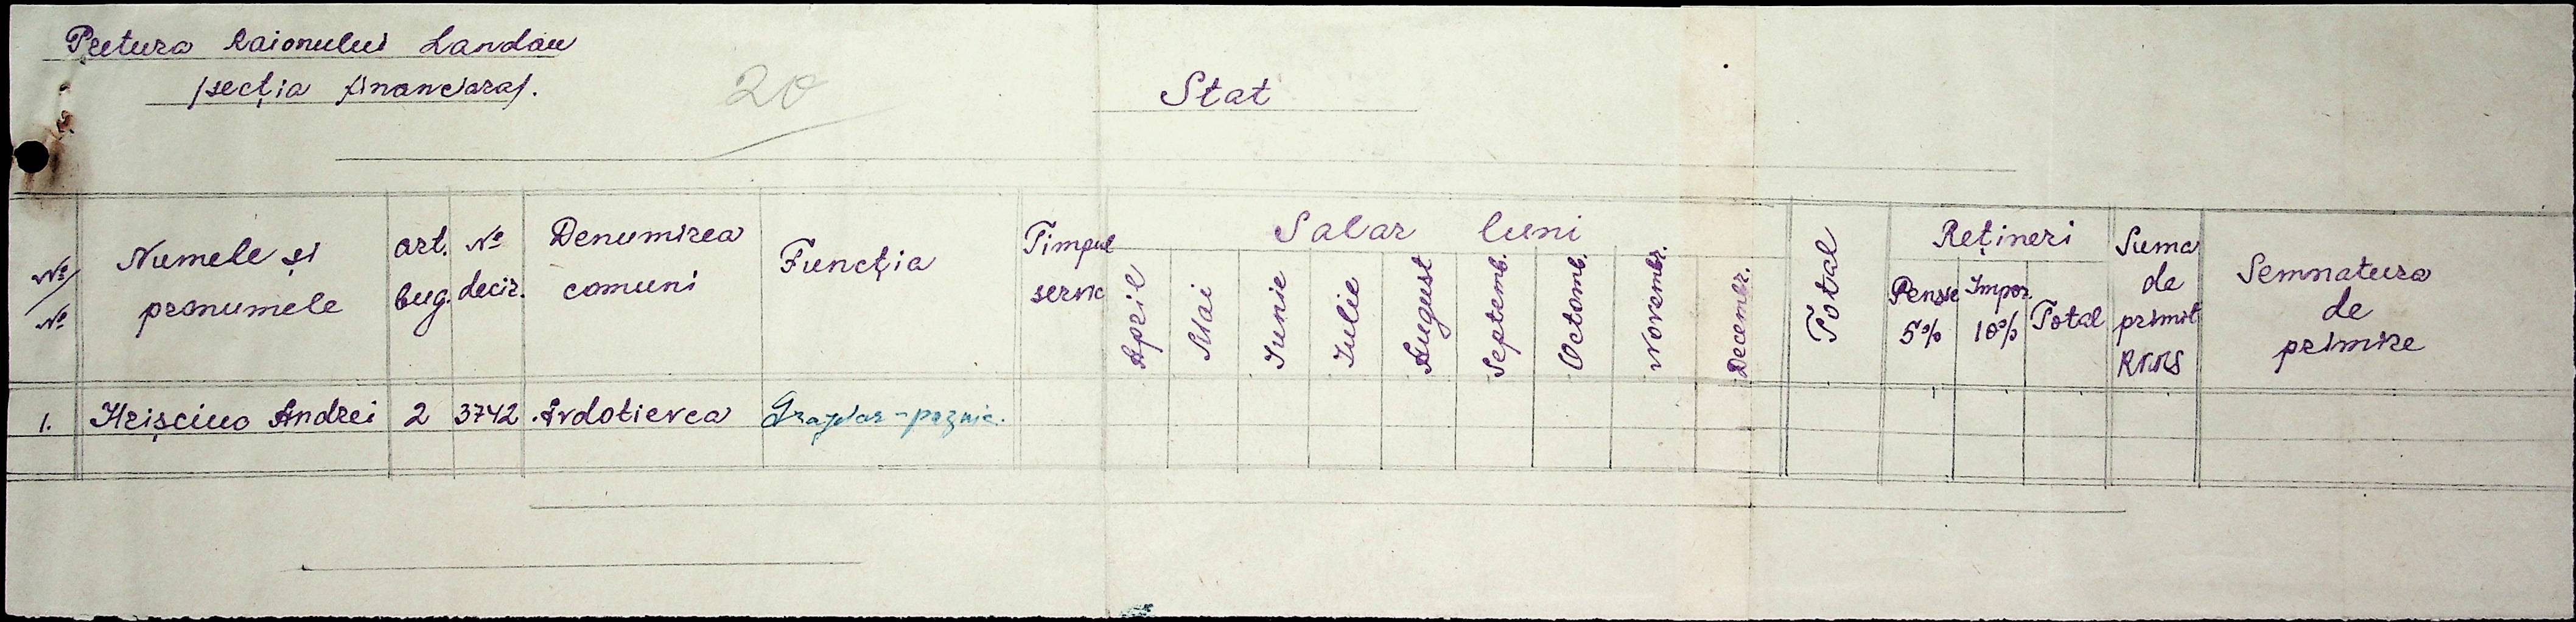 Pretura Raionului Landau
/secția financiara/.
20
Stat
№/№
Numele și pronumele
art. bug.
№ deciz.
Denumirea comuni
Funcția
Timpul servic
Salar luni
April
Mai
Iunie
Iulie
August
Septemb.
Octomb.
Novembr.
Decembr.
Total
Rețineri
Pensie 5%
Impoz. 10%
Total
Suma de primit RKKS
Semnatura de primire
1. Hrișciuo Andrei 2 3742 Avdotievca